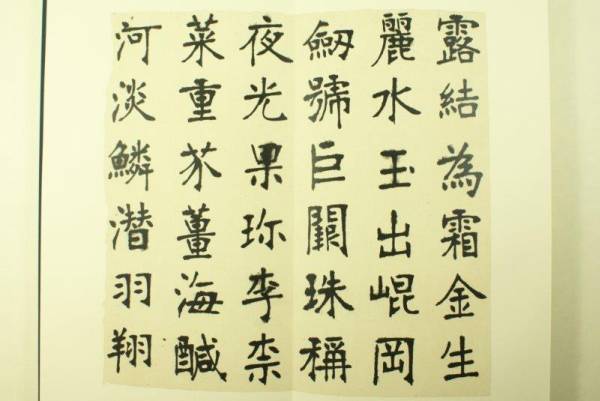 露結為霜金生
麗水玉出崐岡
劒號巨闕珠稱
夜光果珎李柰
菜重芥薑海鹹
河淡鱗潛羽翔